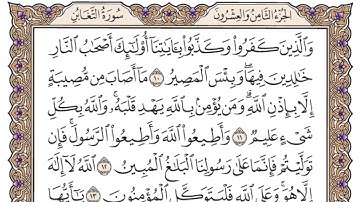 الجزء الثامن والعشرون سورة التغابن
وَٱلَّذِينَ كَفَرُواْ وَكَذَّبُواْ بِـَٔايَٰتِنَآ أُوْلَٰٓئِكَ أَصۡحَٰبُ ٱلنَّارِ
خَٰلِدِينَ فِيهَاۖ وَبِئۡسَ ٱلۡمَصِيرُ ١٠ مَآ أَصَابَ مِن مُّصِيبَةٍ
إِلَّا بِإِذۡنِ ٱللَّهِۗ وَمَن يُؤۡمِنۢ بِٱللَّهِ يَهۡدِ قَلۡبَهُۥۚ وَٱللَّهُ بِكُلِّ
شَيۡءٍ عَلِيمٞ ١١ وَأَطِيعُواْ ٱللَّهَ وَأَطِيعُواْ ٱلرَّسُولَۚ فَإِن
تَوَلَّيۡتُمۡ فَإِنَّمَا عَلَىٰ رَسُولِنَا ٱلۡبَلَٰغُ ٱلۡمُبِينُ ١٢ ٱللَّهُ لَآ إِلَٰهَ
إِلَّا هُوَۚ وَعَلَى ٱللَّهِ فَلۡيَتَوَكَّلِ ٱلۡمُؤۡمِنُونَ ١٣ يَٰٓأَيُّهَا